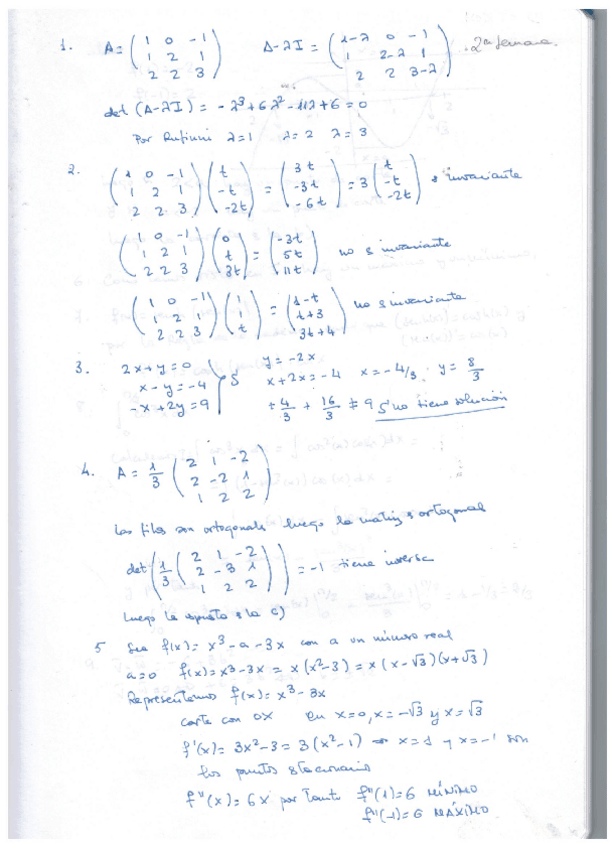 1. A = ( 1 0 -1 / 1 2 1 / 2 2 3 ) A-λI = ( 1-λ 0 -1 / 1 2-λ 1 / 2 2 3-λ ) 2ª semana.
det (A-λI) = -λ³+6λ²-11λ+6 = 0
Por Ruffini λ=1 λ=2 λ=3
2. ( 1 0 -1 / 1 2 1 / 2 2 3 ) ( t / -t / -2t ) = ( 3t / -3t / -6t ) = 3 ( t / -t / -2t ) es invariante
( 1 0 -1 / 1 2 1 / 2 2 3 ) ( 0 / t / 3t ) = ( -3t / 5t / 11t ) no es invariante
( 1 0 -1 / 1 2 1 / 2 2 3 ) ( 1 / 1 / t ) = ( 1-t / t+3 / 3t+4 ) no es invariante
3. 2x+y=0 y=-2x
x-y=-4 S x+2x=-4 x=-4/3 y=8/3
-x+2y=9 +4/3 + 16/3 ≠ 9 S no tiene solución
4. A = 1/3 ( 2 1 -2 / 2 -2 1 / 1 2 2 )
Las filas son ortogonales luego la matriz es ortogonal
det ( 1/3 ( 2 1 -2 / 2 -3 1 / 1 2 2 ) ) = -1 tiene inversa
Luego la opuesta es la c)
5 Sea f(x) = x³-a-3x con a un número real
a=0 f(x)=x³-3x = x(x²-3) = x(x-√3)(x+√3)
Representemos f(x)=x³-3x
corte con OX en x=0, x=-√3 y x=√3
f'(x)=3x²-3=3(x²-1) x=1 y x=-1 son
los puntos estacionarios
f''(x)=6x por tanto f''(1)=6 MÍNIMO
f''(-1)=6 MÁXIMO